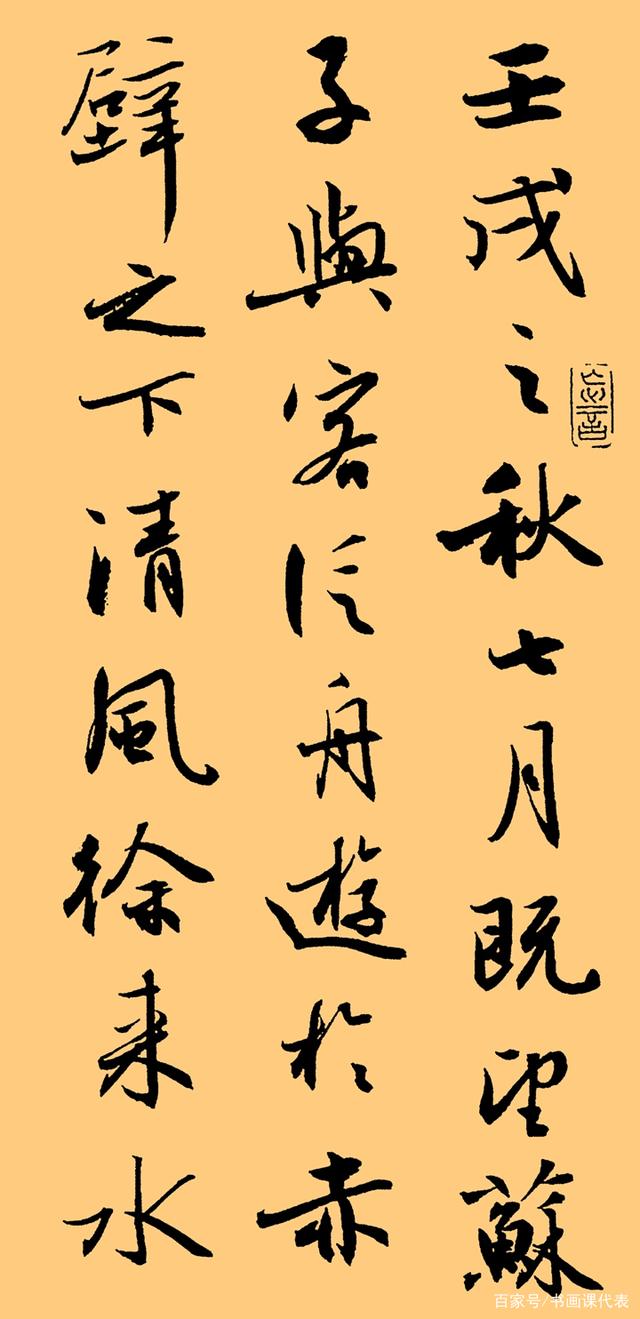 壬戌之秋七月既望蘇
子與客泛舟遊於赤
壁之下清風徐来水
百家号/书画课代表